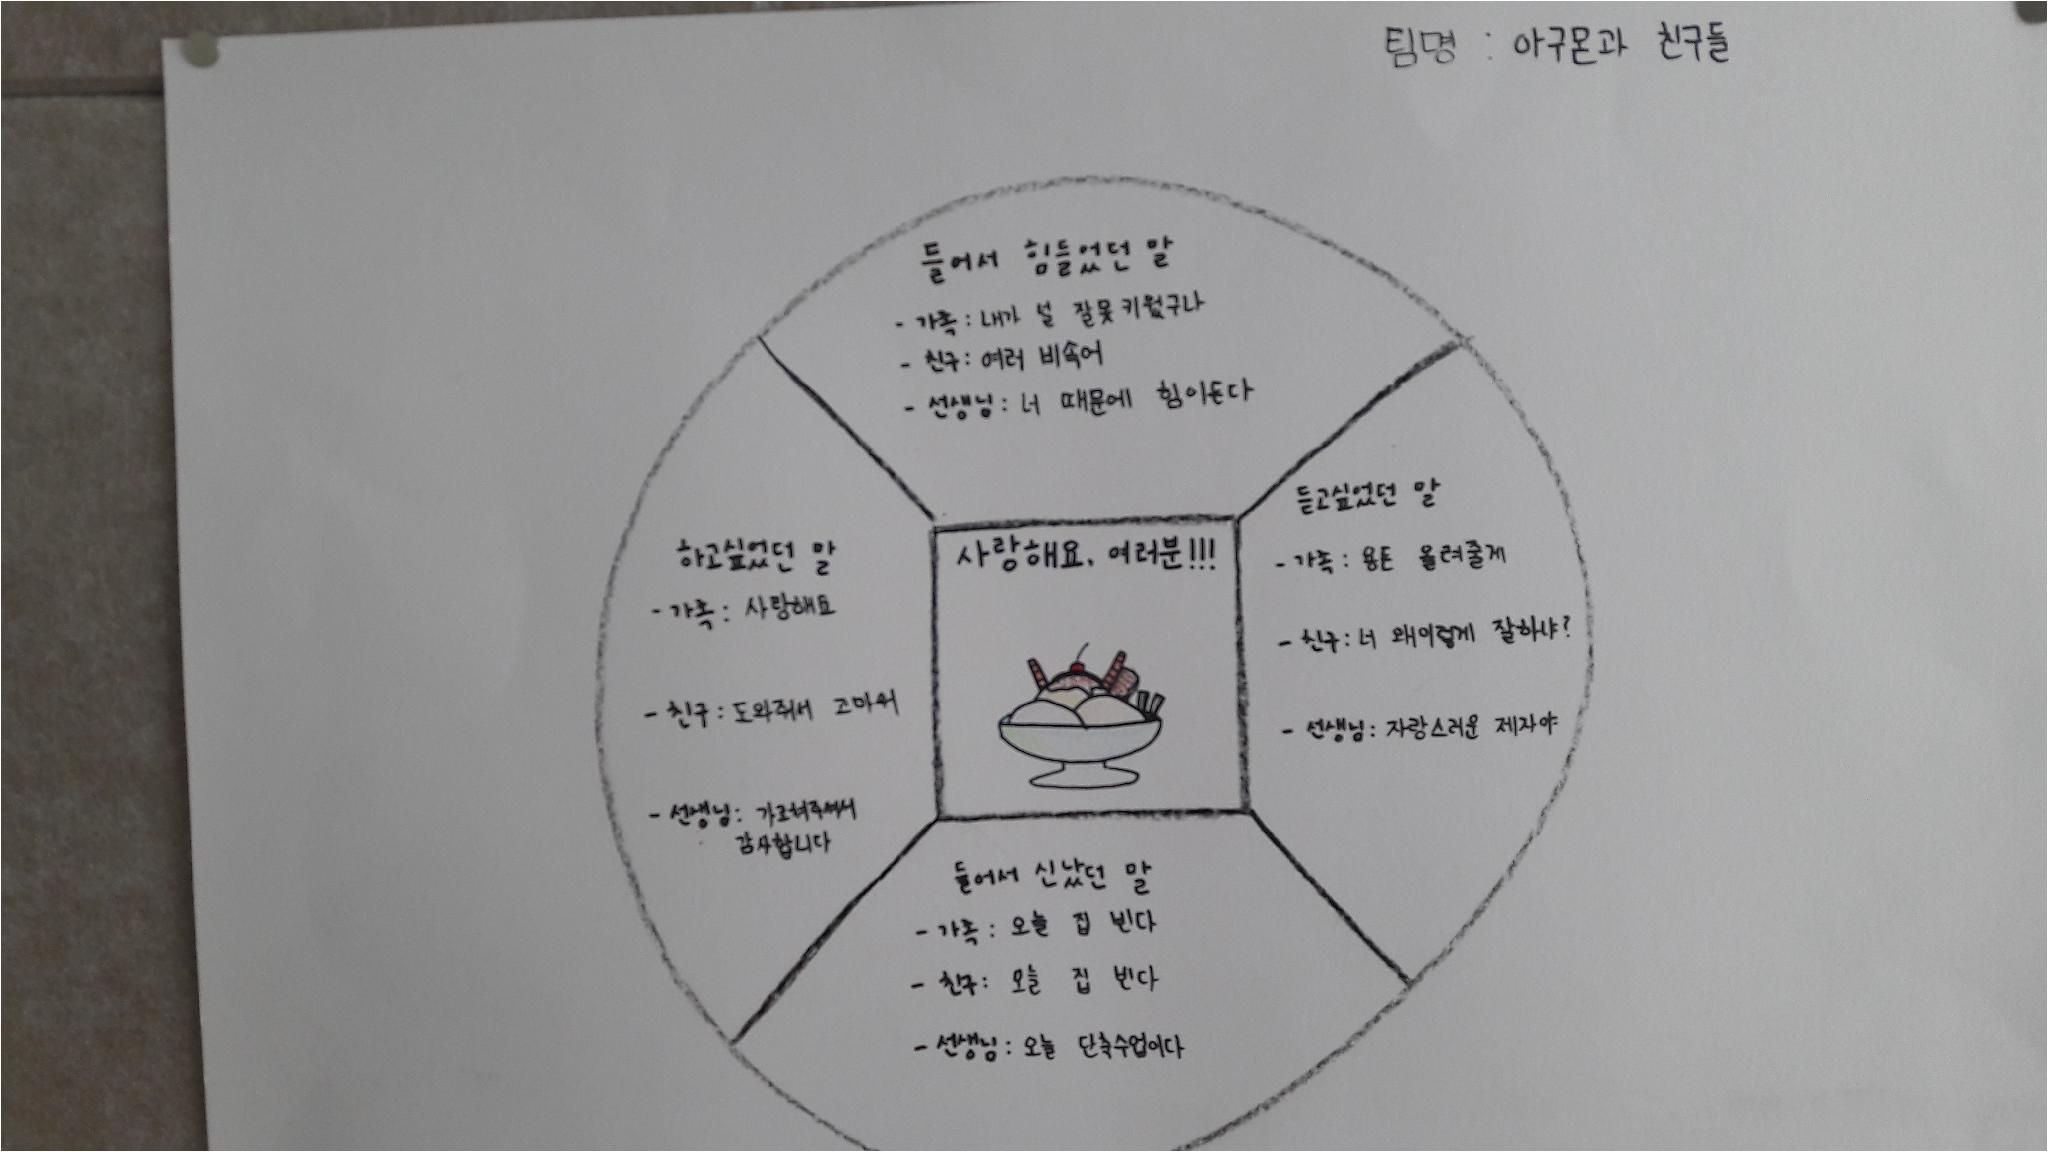 팀명 : 아구몬과 친구들
들어서 힘들었던 말
- 가족 : 내가 널 잘못키웠구나
- 친구 : 여러 비속어
- 선생님 : 너 때문에 힘이든다
듣고싶었던 말
- 가족 : 용돈 올려줄게
- 친구 : 너 왜이렇게 잘하냐?
- 선생님 : 자랑스러운 제자야
하고싶었던 말
- 가족 : 사랑해요
- 친구 : 도와줘서 고마워
- 선생님 : 가르쳐주셔서
감사합니다
사랑해요, 여러분!!!
들어서 신났던 말
- 가족 : 오늘 집 빈다
- 친구 : 오늘 집 빈다
- 선생님 : 오늘 단축수업이다